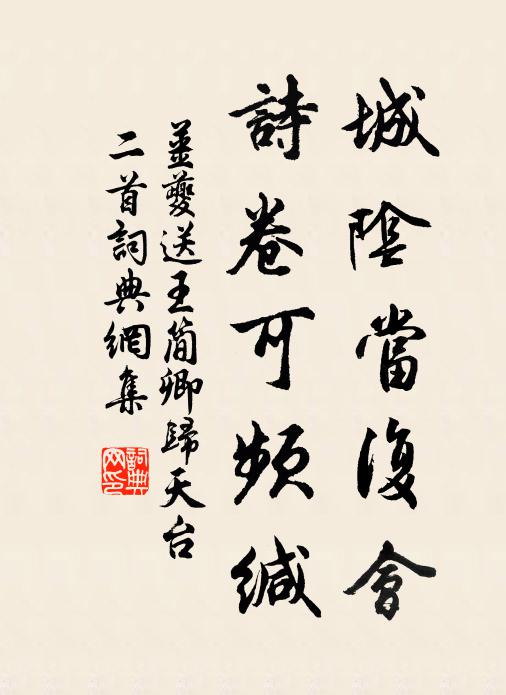 城陰當復會
詩卷可頻緘
姜夔送王簡卿歸天台
二首詞典網集
詞典
网印